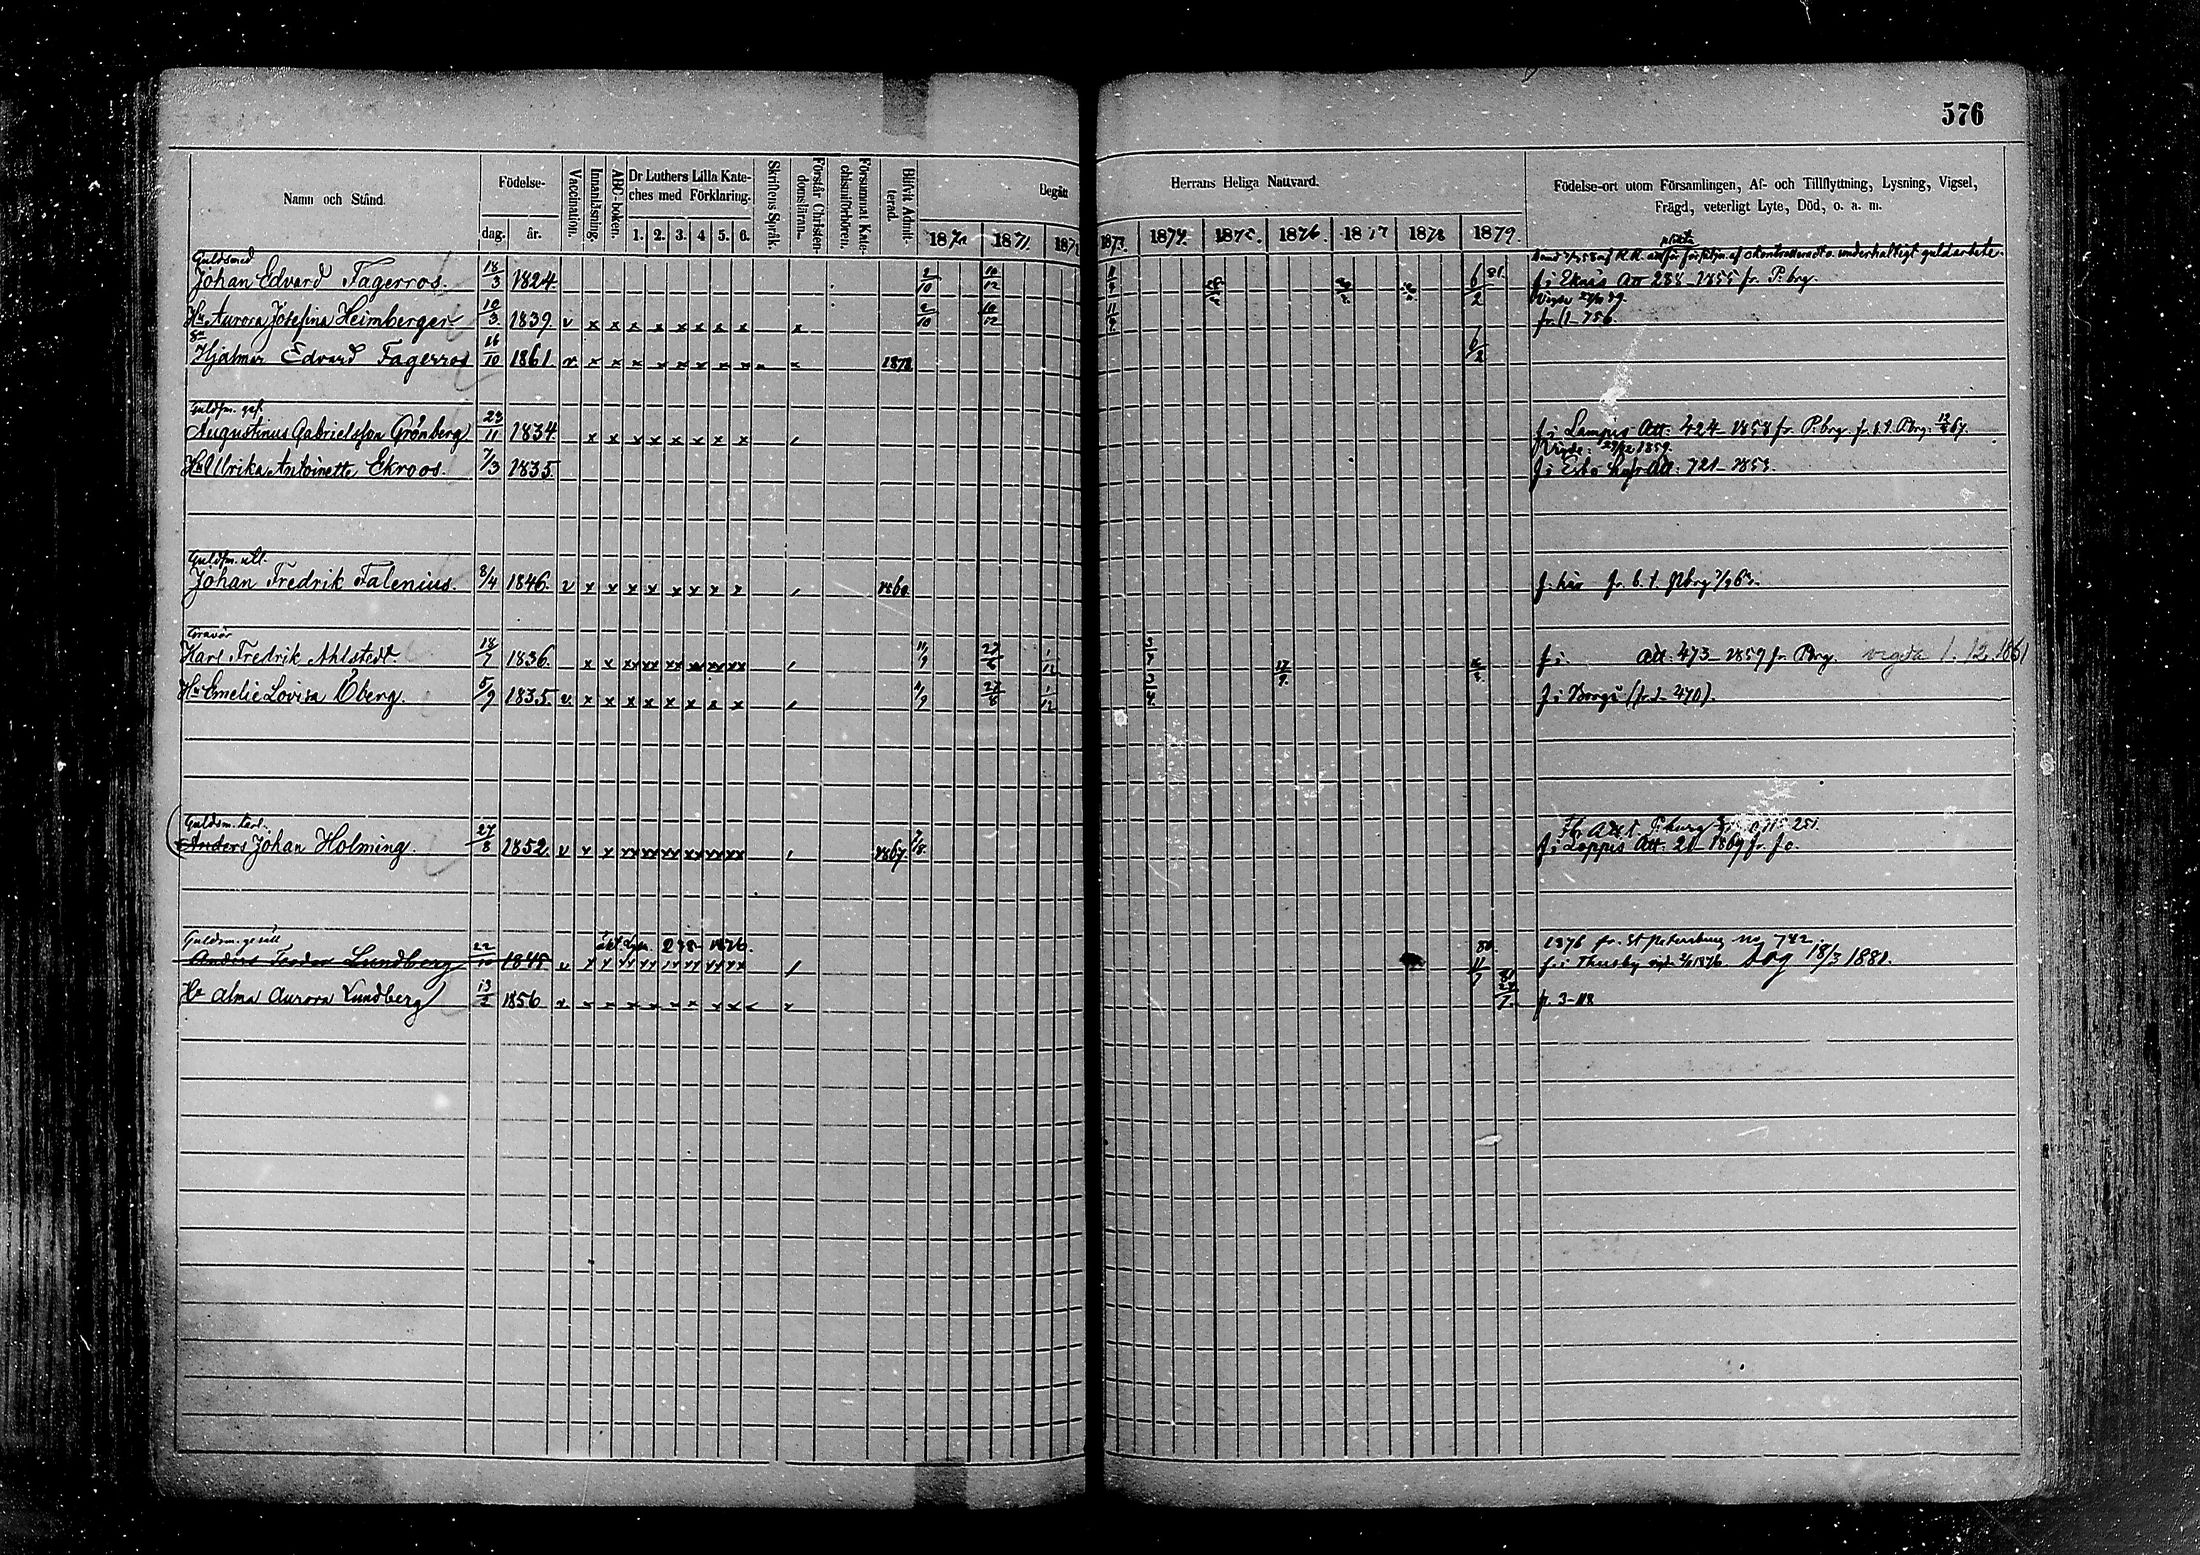 576
Namn och Stånd.
Födelse-
dag.
år.
Vaccination.
Innanläsning.
ABC-boken.
Dr Luthers Lilla Kate-
ches med Förklaring.
1. 2. 3. 4 5. 6.
Skriftens Språk.
Förstår Christen-
domsläran.
Försummat Kate-
chismiförhören.
Blifvit Admit-
terad.
Begått
Herrans Heliga Nattvard.
1870 1871. 1872 1873. 1874. 1875. 1876. 1877 1878 1879.
Födelse-ort utom Församlingen, Af- och Tillflyttning, Lysning, Vigsel,
Frägd, veterligt Lyte, Död, o. a. m.
Guldsmed
Johan Edvard Fagerroos. 18/3 1824. 2/10 10/12 6/2 81. f. i Eknäs Att 238-1855 fr. P.brg.
Hu Aurora Josefina Heimberger 10/3 1839. v x x x x x x x x x 2/10 10/12 fr. 11-756.
Sn
Hjalmar Edvard Fagerroos 16/10 1861. v. x x x x x x x x x x 1878 6/2
Guldsm. ges.
Augustinus Gabrielsson Grönberg 23/11 1834. x x x x x x x x f. i Lampis Att. 424-1858 fr. P.brg. fr. b. t. P.brg. 67.
Vigde 1859.
Hu Ulrika Antoinette Ekroos. 7/3 1835. f. i Esbo Att. 721-1853.
Guldsm. ell.
Johan Fredrik Falenius. 3/4 1846. v x x x x x x x x 1860. f. här fr. b. t. P.brg
Gravör
Karl Fredrik Ahlstedt. 18/7 1836. x x xx xx xx xx xx xx 11/9 27/6 1/12 3/4 f. i Att. 473-1859 fr. P.brg. vigda 1. 12. 1861
Hu Emelie Lovisa Öberg. 5/9 1835. v. x x x x x x x x 11/9 27/6 1/12 3/4 f. i Borgå (fr. 1-470).
Guldsm. lärl.
Anders Johan Holming. 27/8 1852. v x x xx xx xx xx xx xx 1867. 7/8. f. i Loppis Att. 21-1869 fr. fo.
Guldsm. gesäll
Anders Teodor Lundberg 22/10 1845 v x x xx xx xx xx xx xx 80. 11/7 1876 fr. St Petersburg no 742
f. i Thusby 1876. dog 18/3 1881.
Hu Alma Aurora Lundberg 13/2 1856 x x x x x x x x x fr. 3-118